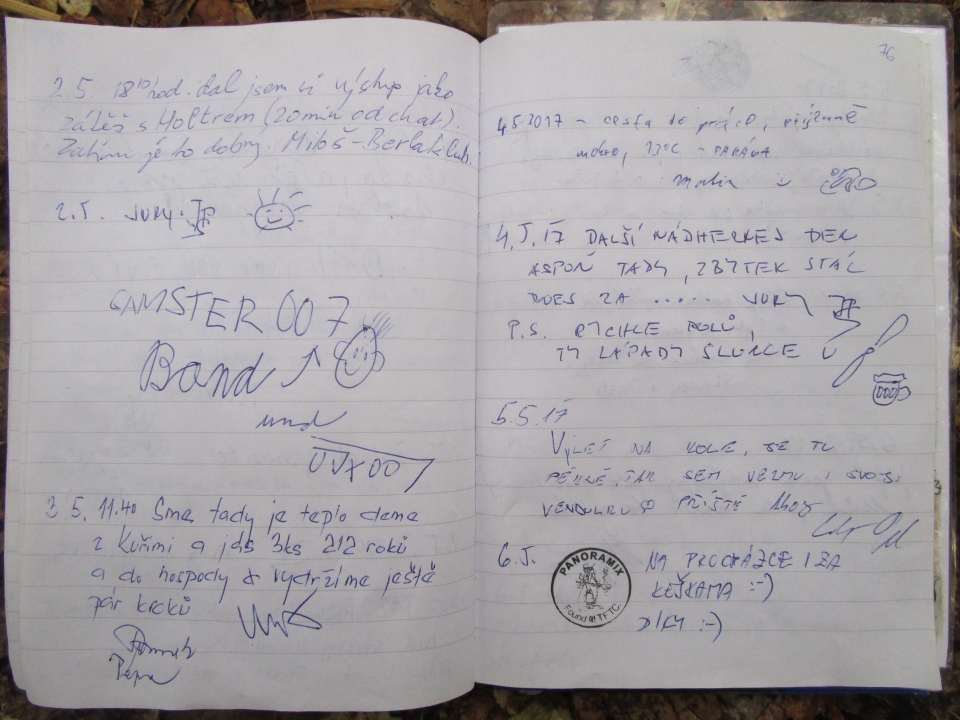 2.5. 18¹⁰ hod. dal jsem si výstup jako
zátěž s Holtrem (20 min od chat).
Zatím je to dobrý. Miloš-Berlaklub.
2.5. JURY
007
Band
und
3 5. 11.40 Sme tady je teplo deme
z Kuřimi a jds 3ks 212 roků
a do hospody vydržíme ještě
pár kroků
Pepa
76
4.5.2017 - cesta do práce, příjemně
mokro, 13°C - PARÁDA
4.5.17 DALŠÍ NÁDHERNEJ DEN
ASPOŇ TADY, ZBYTEK STÁL
DNES ZA ..... JURY
P.S. RYCHLE DOLŮ,
5.5.17
VÝLET NA KOLE, JE TU
PĚKNĚ, TAK SEM VEZMU I SVOJI
VENDULKU PŘÍŠTĚ AHOJ
6.5.
PANORAMIX
Found it! TFTC
NA PROCHÁZCE I ZA
KEŠKAMA :-)
DÍKY :-)